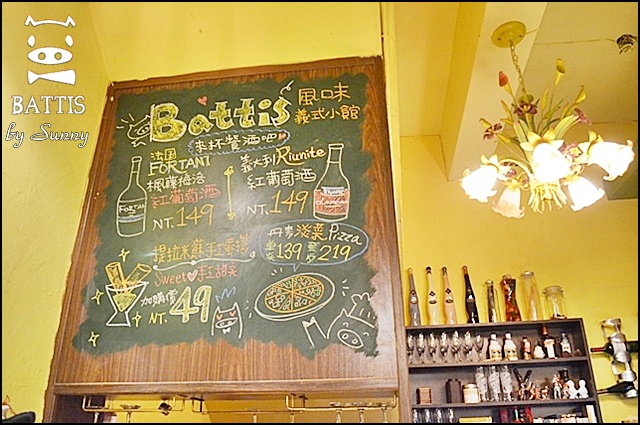 BATTIS
by Sunny
Battis
風味
義式小館
來杯餐酒吧
法国
FORTANI
紅葡萄酒
NT. 149
義大利 Riunite
紅葡萄酒
NT. 149
FORTANI
提拉米蘇手工蛋捲
Sweet 手工甜笑
加購價
NT. 49
丹麥淡菜 Pizza
139
219